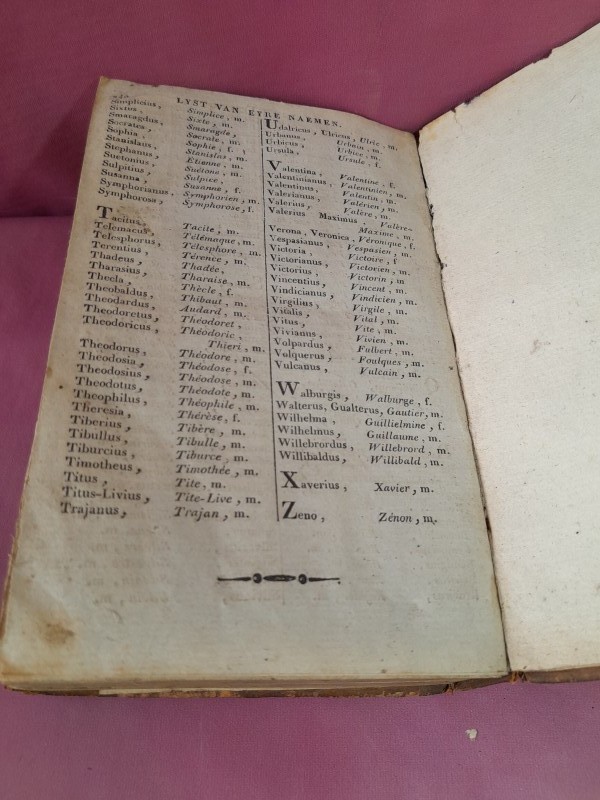 LYST VAN EYRE NAEMEN.
Simplicius, Simplice, m.
Sixtus, Sixte, m.
Smaragdus, Smaragde,
Socrates, Socrate, m.
Sophia, Sophie, f.
Stanislaus, Stanislas, m.
Stephanus, Etienne, m.
Suetonius, Suétone, m.
Sulpitius, Sulpice,
Susanna, Susanne, f.
Symphorianus, Symphorien, m.
Symphorosa, Symphorose, f.
Tacitus, Tacite, m.
Telemacus, Télémaque, m.
Telesphorus, Télesphore, m.
Terentius, Térence, m.
Thadeus, Thadée,
Tharasius, Tharaise, m.
Thecla, Thècle, f.
Theobaldus, Thibaut, m.
Theodardus, Audard, m.
Theodoretus, Théodoret,
Theodoricus, Théodoric,
Thieri, m.
Theodorus, Théodore, m.
Theodosia, Théodose, f.
Theodosius, Théodose, m.
Theodotus, Théodote, m.
Theophilus, Théophile, m.
Theresia, Thérèse, f.
Tiberius, Tibère, m.
Tibullus, Tibulle, m.
Tiburcius, Tiburce, m.
Timotheus, Timothée, m.
Titus, Tite, m.
Titus-Livius, Tite-Live, m.
Trajanus, Trajan, m.
Udalricus, Ulricus, Ulric, m.
Urbanus, Urbain, m.
Urbicus, Urbice, m.
Ursula, Ursule, f.
Valentina, Valentine, f.
Valentinianus, Valentinien, m.
Valentinus, Valentin, m.
Valerianus, Valérien, m.
Valerius, Valère, m.
Valerius Maximus, Valère-
Maxime, m.
Verona, Veronica, Véronique, f.
Vespasianus, Vespasien, m.
Victoria, Victoire, f
Victorianus, Victorien, m.
Victorius, Victorin, m
Vincentius, Vincent, m.
Vindicianus, Vindicien, m.
Virgilius, Virgile, m.
Vitalis, Vital, m.
Vitus, Vite, m.
Vivianus, Vivien, m.
Volpardus, Fulbert, m.
Volquerus, Foulques, m.
Vulcanus, Vulcain, m.
Walburgis, Walburge, f.
Walterus, Gualterus, Gautier, m.
Wilhelma, Guillielmine, f.
Wilhelmus, Guillaume, m.
Willebrordus, Willebrord, m.
Willibaldus, Willibald, m.
Xaverius, Xavier, m.
Zeno, Zénon, m.